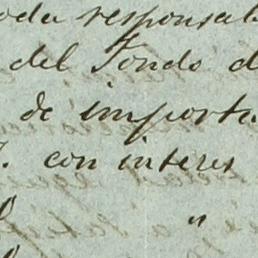 oda responsab
del Fondo d
de importa
con interes
"